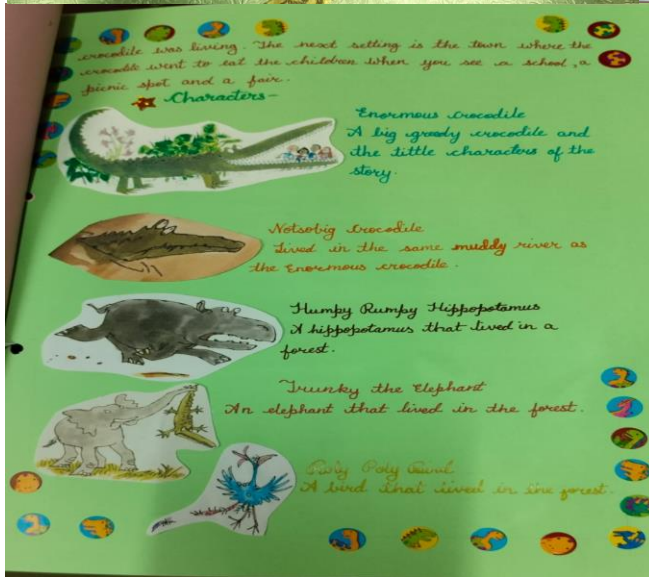 crocodile was living. The next setting is the town where the
crocodile went to eat the children when you see a school, a
picnic spot and a fair.
Characters-
Enormous Crocodile
A big greedy crocodile and
the tittle characters of the
story.
Notsobig Crocodile
Lived in the same muddy river as
the Enormous crocodile.
Humpy Rumpy Hippopotamus
A hippopotamus that lived in a
forest.
Trunky the Elephant
An elephant that lived in the forest.
Roly Poly Bird
A bird that lived in the forest.